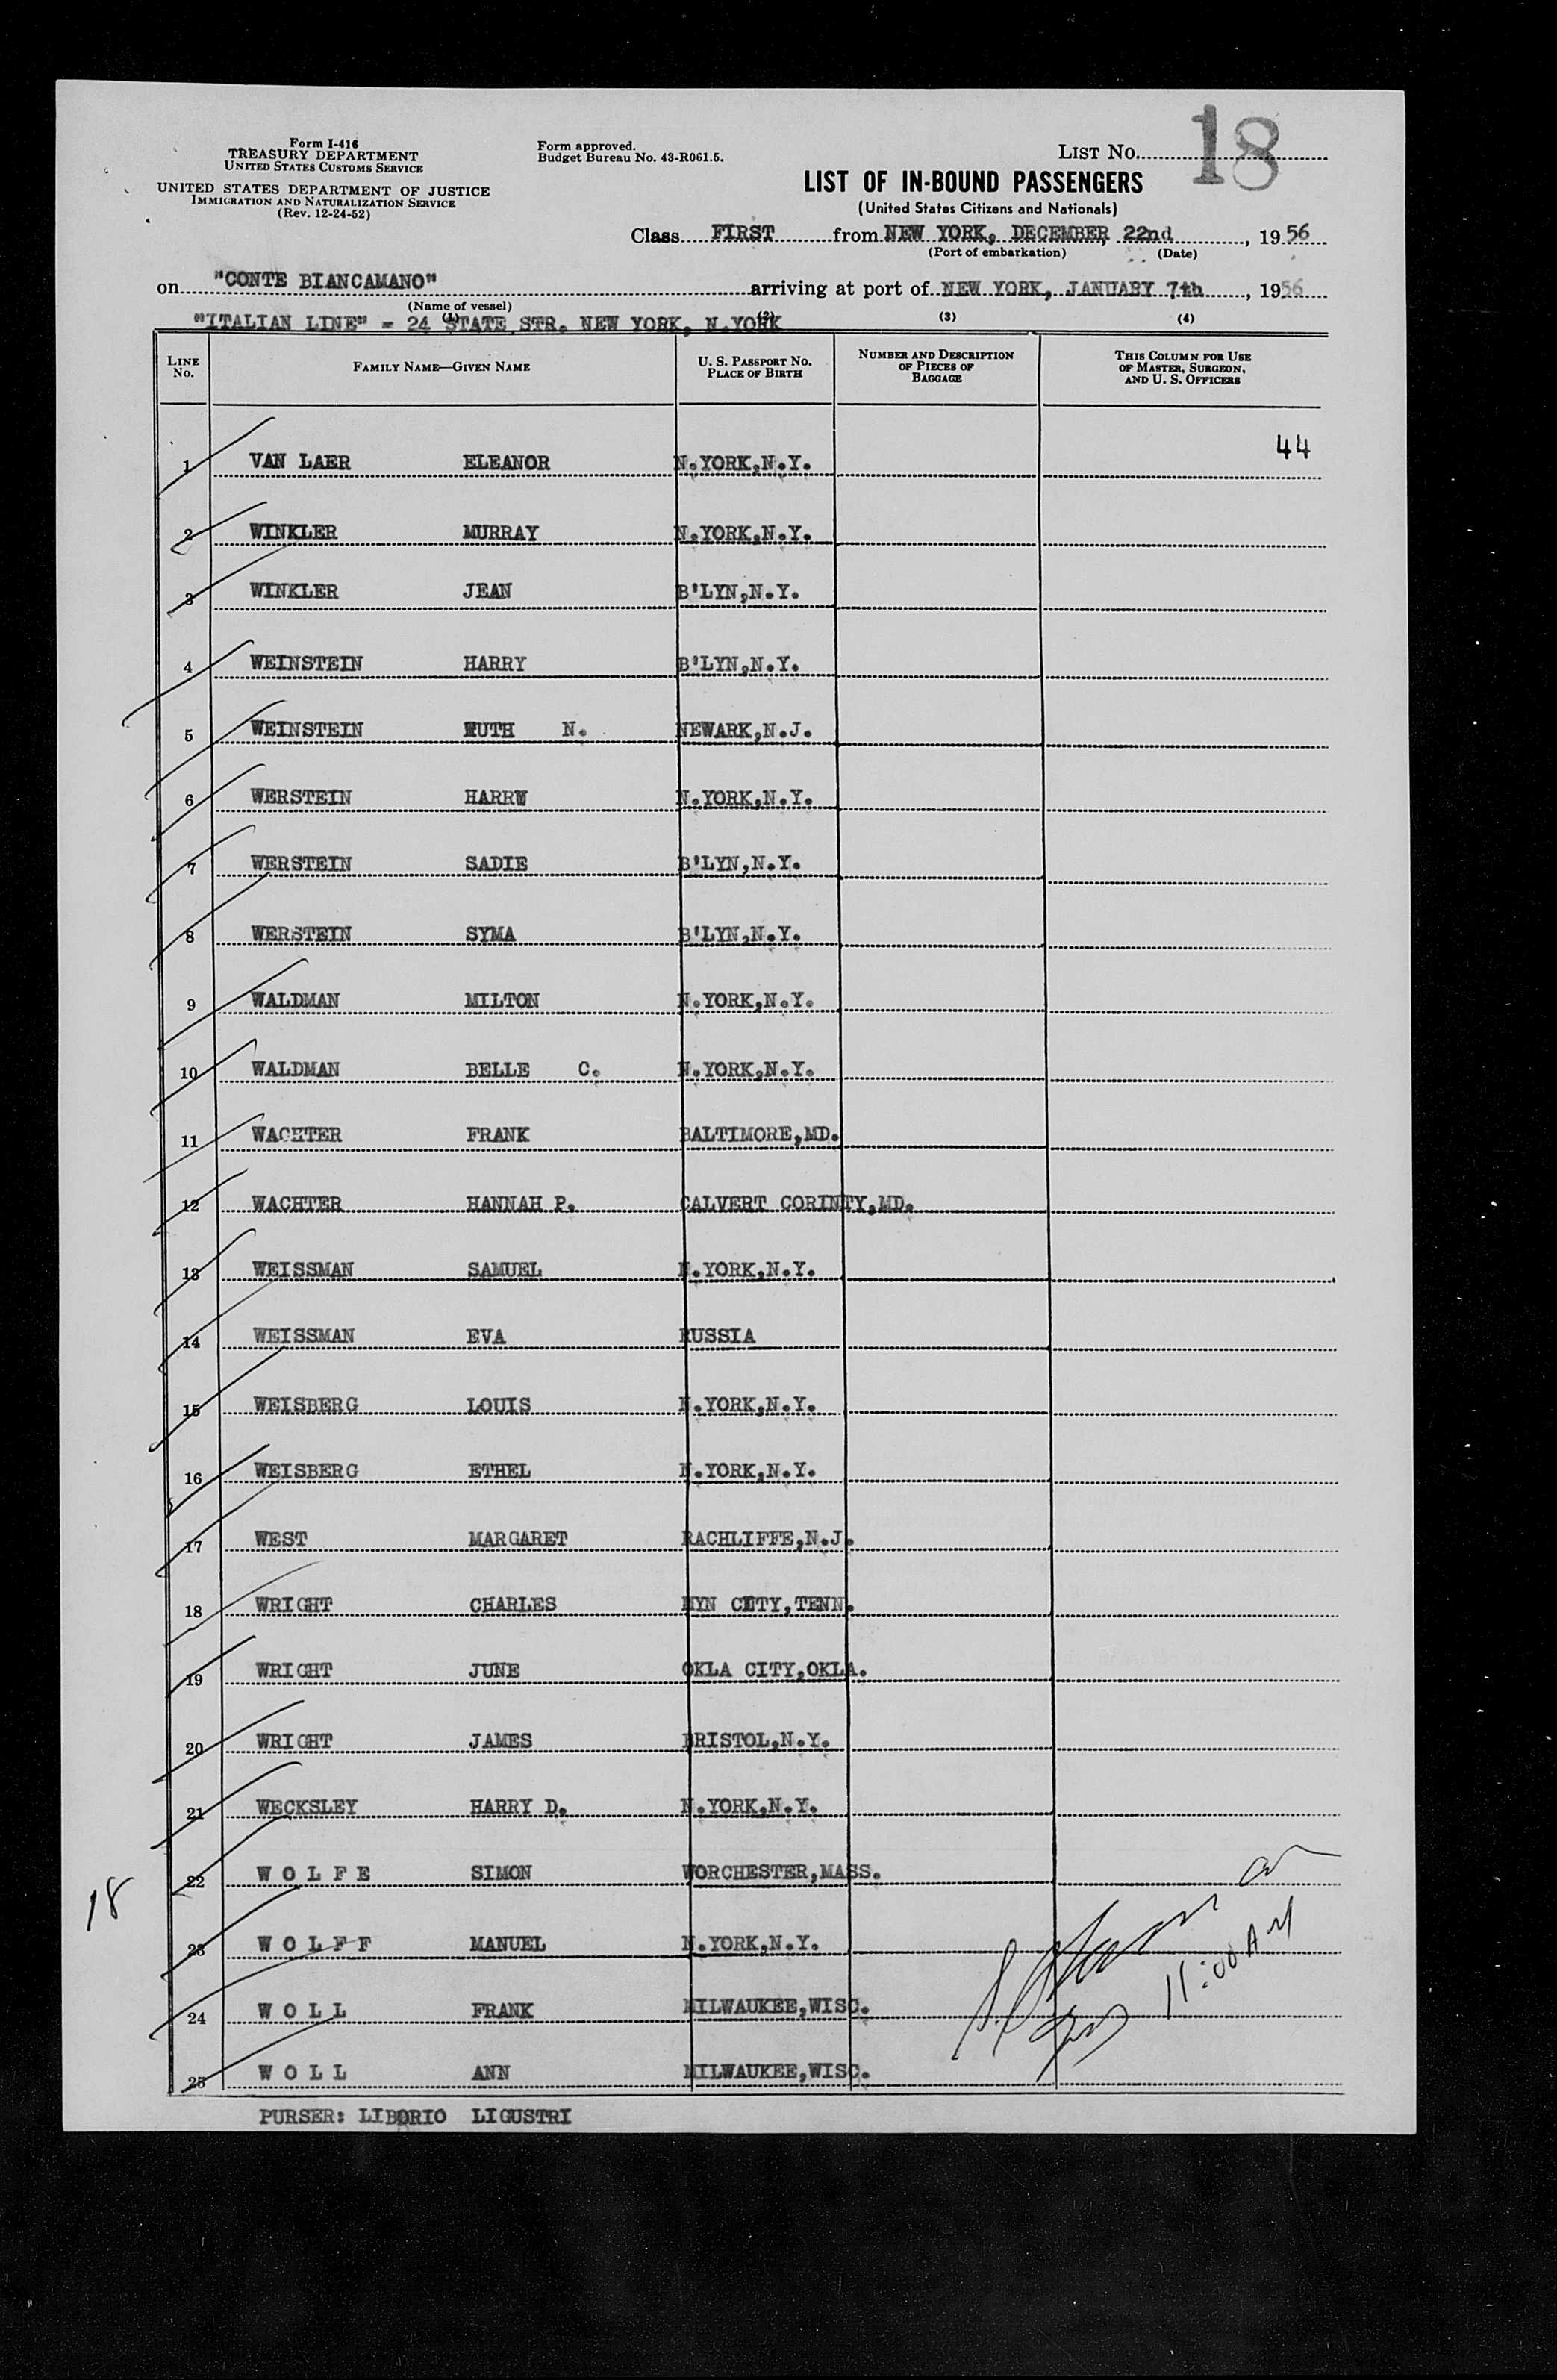 Form I-416
TREASURY DEPARTMENT
UNITED STATES CUSTOMS SERVICE
UNITED STATES DEPARTMENT OF JUSTICE
IMMIGRATION AND NATURALIZATION SERVICE
(Rev. 12-24-52)
Form approved.
Budget Bureau No. 43-R061.5.
LIST No. 18
LIST OF IN-BOUND PASSENGERS
(United States Citizens and Nationals)
Class FIRST from NEW YORK, DECEMBER 22nd, 1956
(Port of embarkation) (Date)
on "CONTE BIANCAMANO" arriving at port of NEW YORK, JANUARY 7th, 1956
(Name of vessel)
"ITALIAN LINE" = 24 STATE STR. NEW YORK, N.YORK
(1) (2) (3) (4)
LINE No. FAMILY NAME—GIVEN NAME U. S. PASSPORT NO. PLACE OF BIRTH NUMBER AND DESCRIPTION OF PIECES OF BAGGAGE THIS COLUMN FOR USE OF MASTER, SURGEON, AND U. S. OFFICERS
44
1 VAN LAER ELEANOR N.YORK,N.Y.
2 WINKLER MURRAY N.YORK,N.Y.
3 WINKLER JEAN B'LYN,N.Y.
4 WEINSTEIN HARRY B'LYN,N.Y.
5 WEINSTEIN RUTH N. NEWARK,N.J.
6 WERSTEIN HARRY N.YORK,N.Y.
7 WERSTEIN SADIE B'LYN,N.Y.
8 WERSTEIN SYMA B'LYN,N.Y.
9 WALDMAN MILTON N.YORK,N.Y.
10 WALDMAN BELLE C. N.YORK,N.Y.
11 WACHTER FRANK BALTIMORE,MD.
12 WACHTER HANNAH P. CALVERT CORINTY,MD.
13 WEISSMAN SAMUEL N.YORK,N.Y.
14 WEISSMAN EVA RUSSIA
15 WEISBERG LOUIS N.YORK,N.Y.
16 WEISBERG ETHEL N.YORK,N.Y.
17 WEST MARGARET RACHLIFFE,N.J.
18 WRIGHT CHARLES CITY,TENN.
19 WRIGHT JUNE OKLA CITY,OKLA.
20 WRIGHT JAMES BRISTOL,N.Y.
21 WECKSLEY HARRY D. N.YORK,N.Y.
22 W O L F E SIMON WORCHESTER,MASS.
18
23 W O L F F MANUEL N.YORK,N.Y.
11:00 AM
24 W O L L FRANK MILWAUKEE,WISC.
25 W O L L ANN MILWAUKEE,WISC.
PURSER: LIBORIO LIGUSTRI